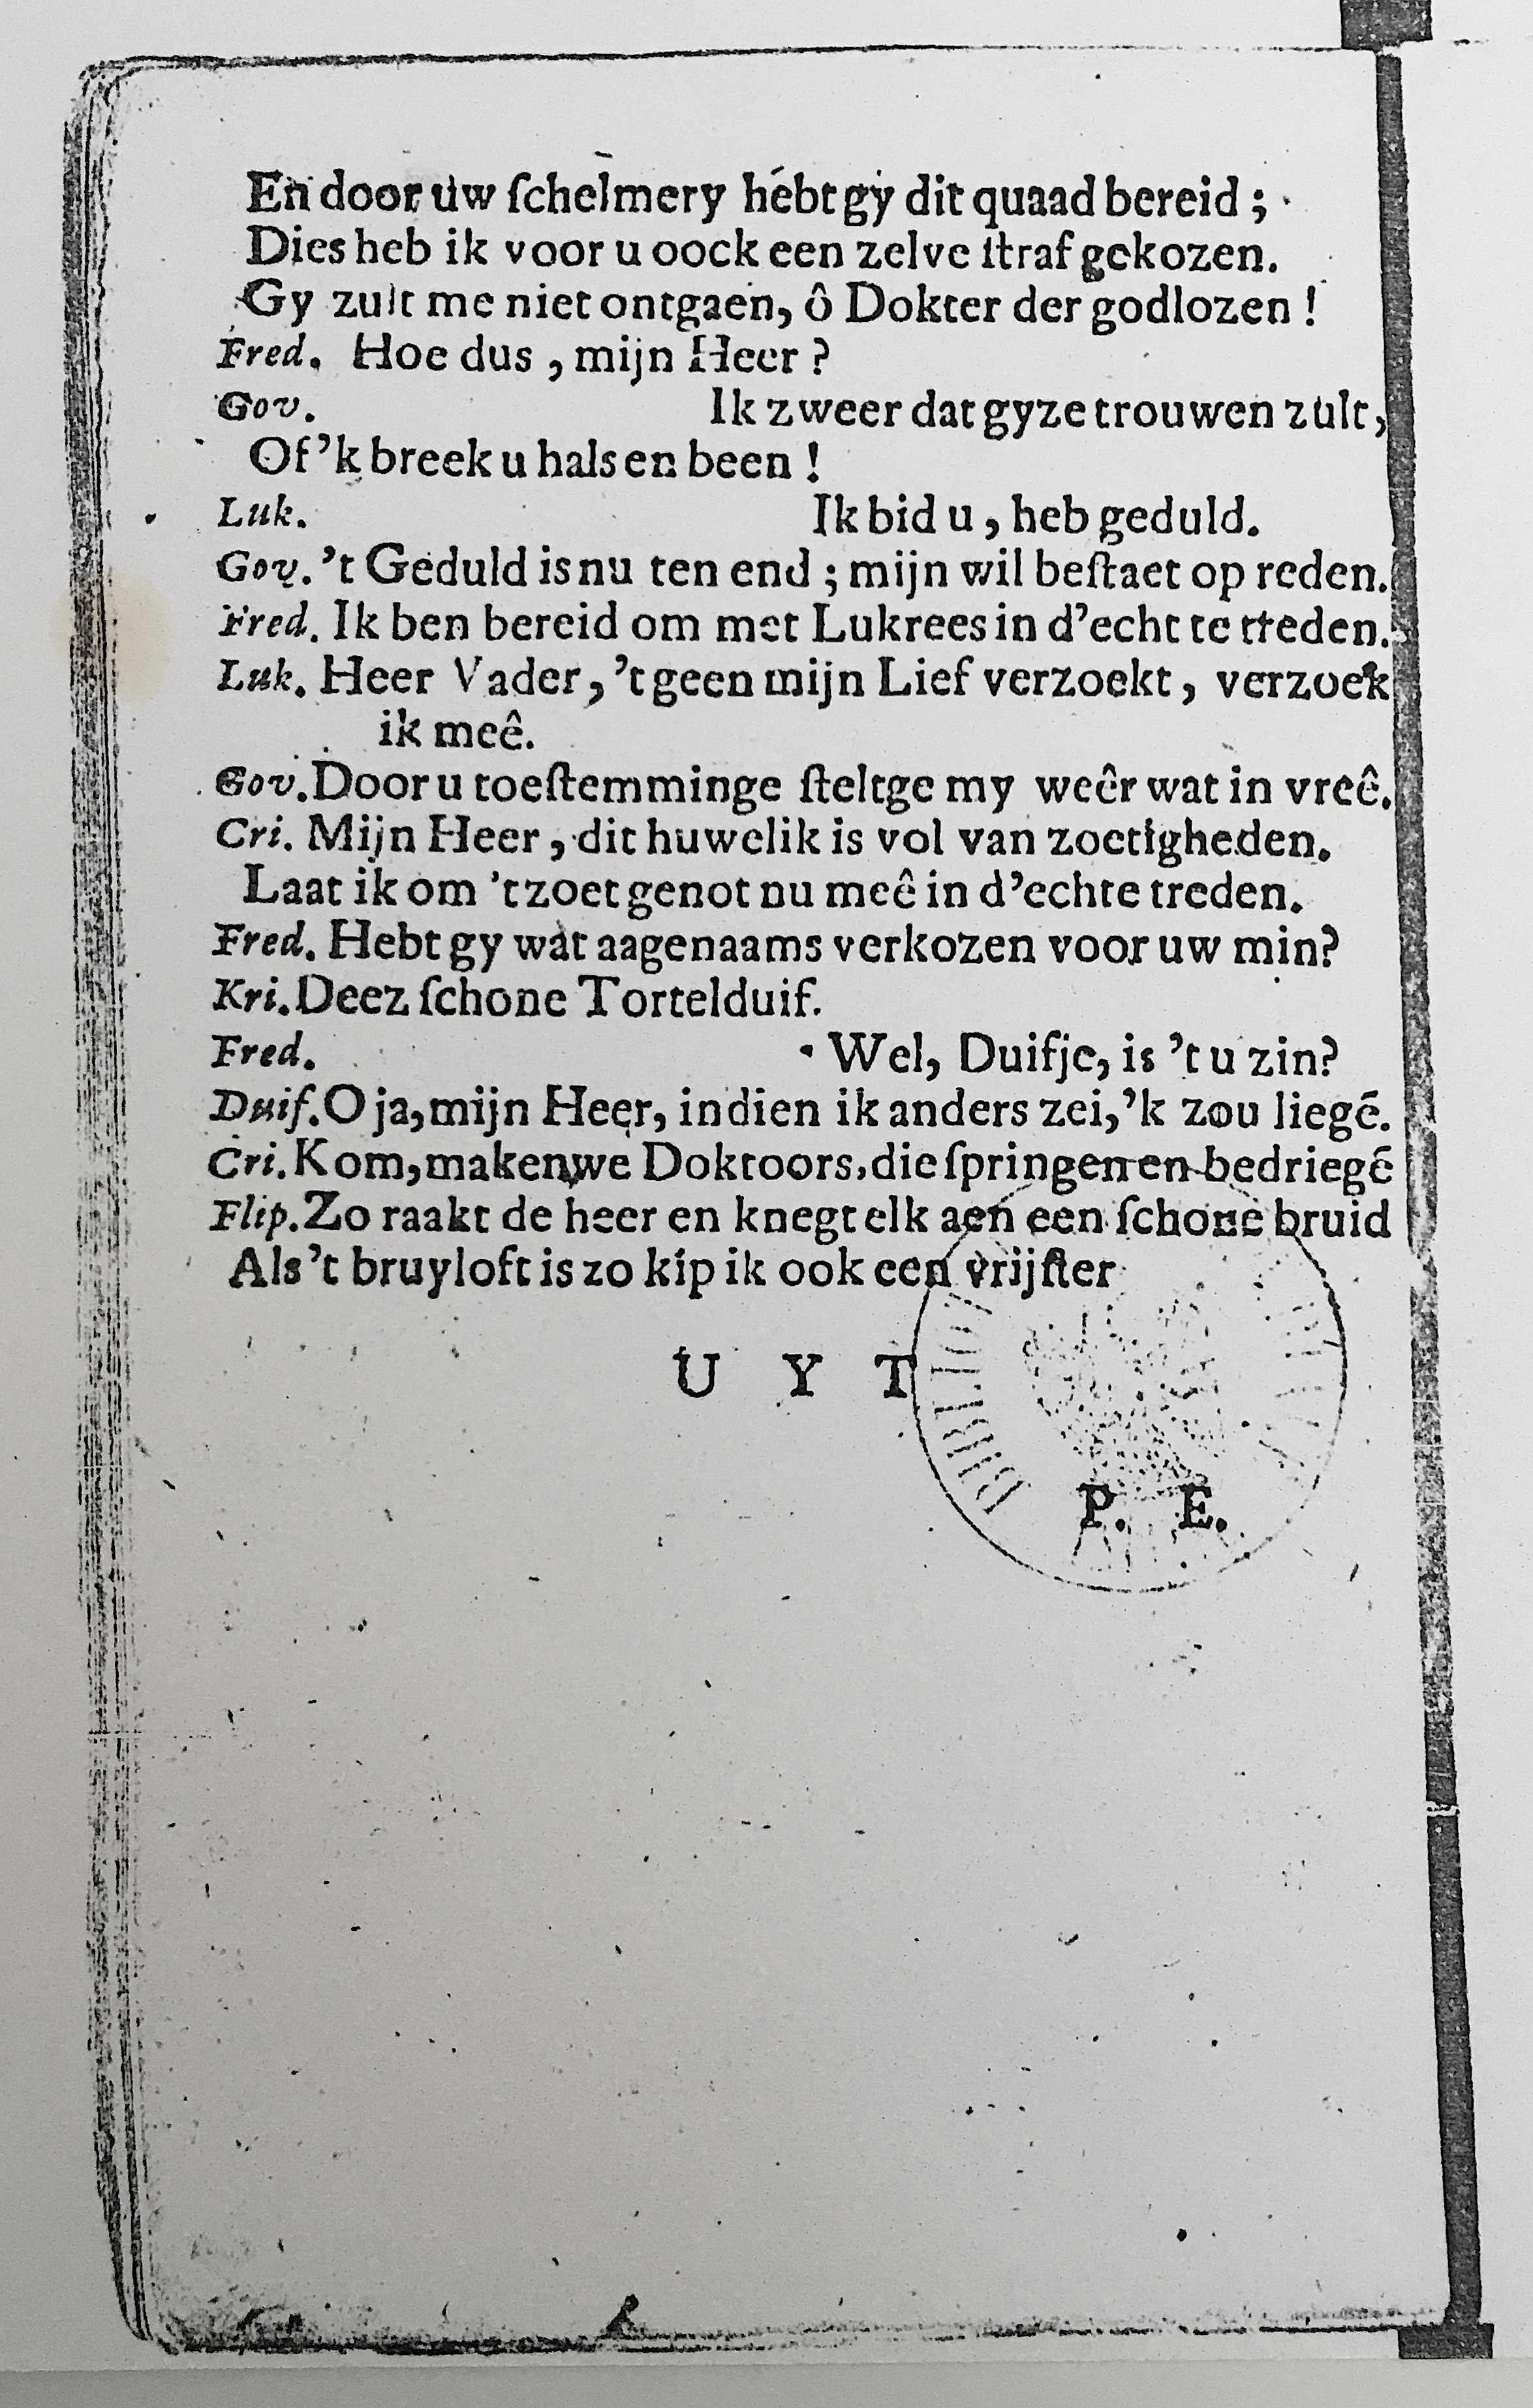 En door uw ſchelmery hebt gy dit quaad bereid ;
Dies heb ik voor u oock een zelve ſtraf gekozen.
Gy zult me niet ontgaen, ô Dokter der godlozen !
Fred. Hoe dus , mijn Heer ?
Gov. Ik zweer dat gyze trouwen zult,
Of 'k breek u hals en been !
Luk. Ik bid u , heb geduld.
Gov. 't Geduld is nu ten end ; mijn wil beſtaet op reden.
Fred. Ik ben bereid om met Lukrees in d'echt te treden.
Luk. Heer Vader, 't geen mijn Lief verzoekt , verzoek
ik meê.
Gov. Door u toeſtemminge ſteltge my weêr wat in vreê.
Cri. Mijn Heer , dit huwelik is vol van zoetigheden.
Laat ik om 't zoet genot nu meê in d'echte treden.
Fred. Hebt gy wat aagenaams verkozen voor uw min?
Kri. Deez ſchone Tortelduif.
Fred. Wel, Duifje, is 't u zin?
Duif. O ja, mijn Heer, indien ik anders zei, 'k zou liegē.
Cri. Kom, maken we Doktoors, die ſpringen en bedriegē
Flip. Zo raakt de heer en knegt elk aen een ſchone bruid
Als 't bruyloft is zo kip ik ook een vrijſter
U Y T
P. E.